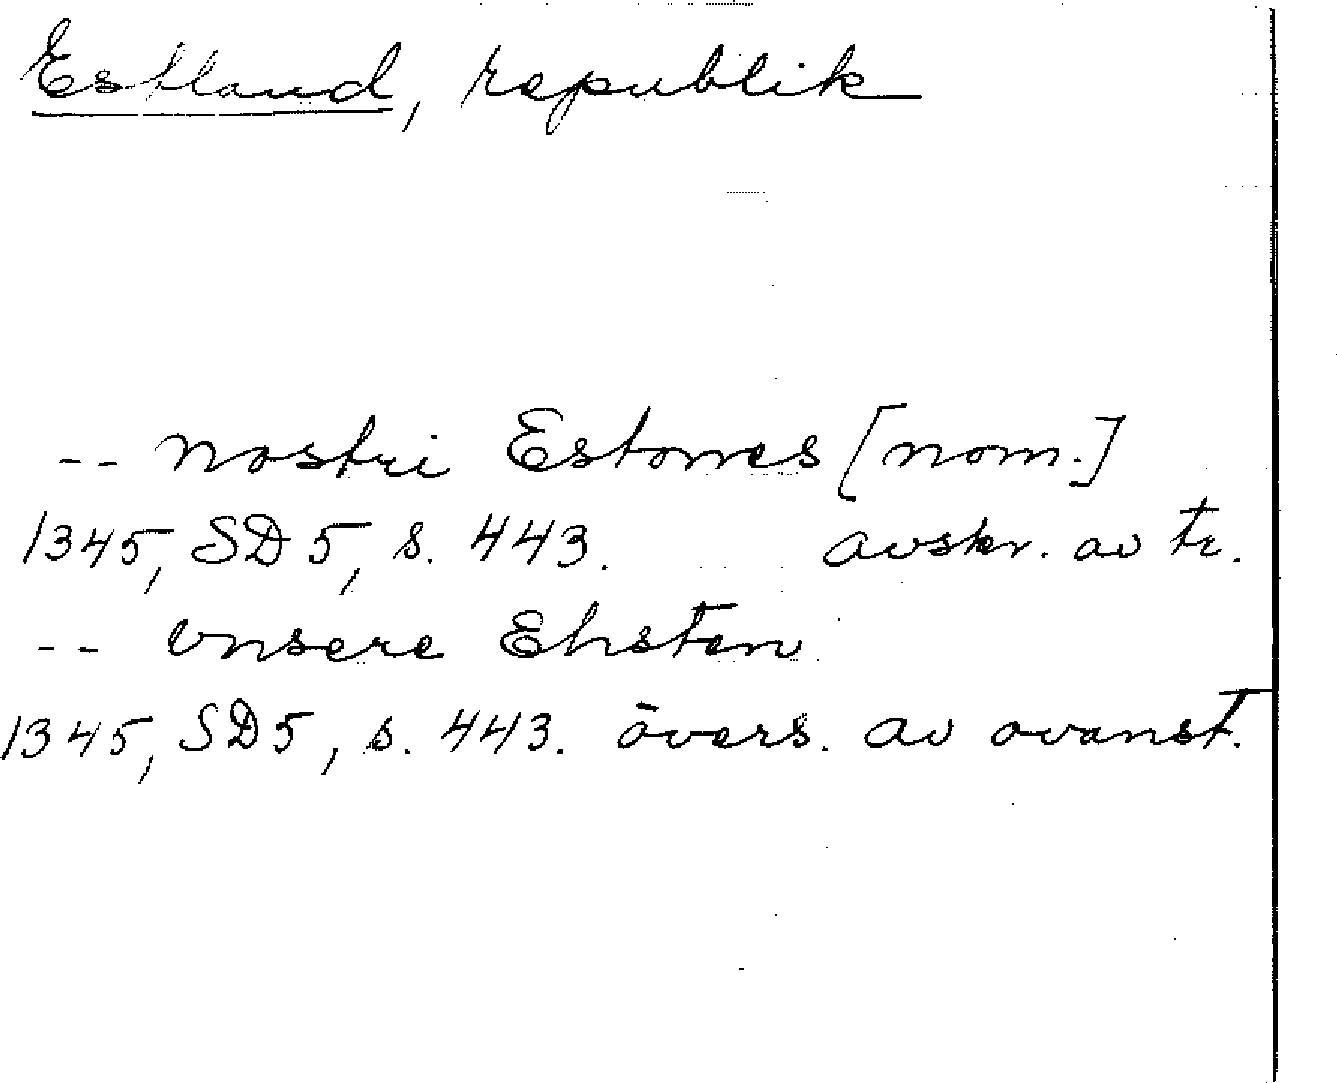 Estland, republik
-- nostri Estones [nom.]
1345, SD 5, s. 443. avskr. av tr.
-- vnsere Ehsten
1345, SD5, s. 443. övers. av ovanst.